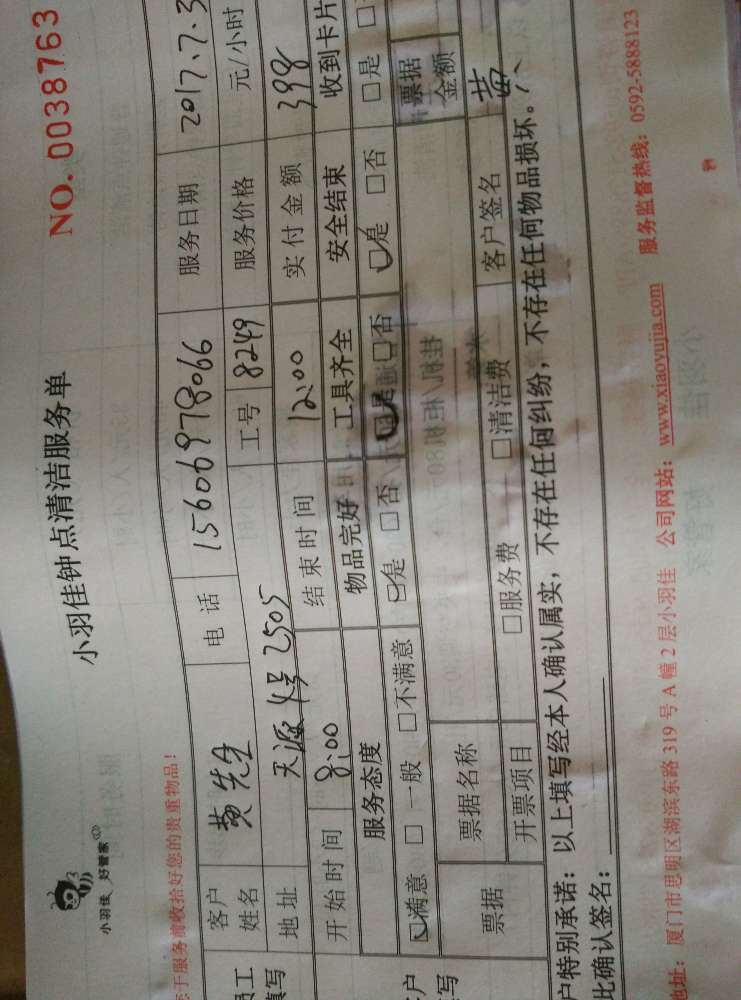 小羽佳 好管家
小羽佳钟点清洁服务单
NO. 0038763
于服务前收拾好您的贵重物品!
客户姓名 黄先生 电话 15606978066 服务日期 2017.7.3
地址 2505 工号 8249 服务价格 元/小时
开始时间 8:00 结束时间 12:00 实付金额 398
服务态度 物品完好 工具齐全 安全结束 收到卡片
满意 □一般 □不满意 是 □否 是 □否 是 □否 □是 □
票据 票据名称 票据金额
开票项目 □服务费 □清洁费 客户签名 黄
户特别承诺:以上填写经本人确认属实,不存在任何纠纷,不存在任何物品损坏。
此确认签名:
地址:厦门市思明区湖滨东路319号A幢2层小羽佳 公司网站:www.xiaoyujia.com 服务监督热线:0592-5888123